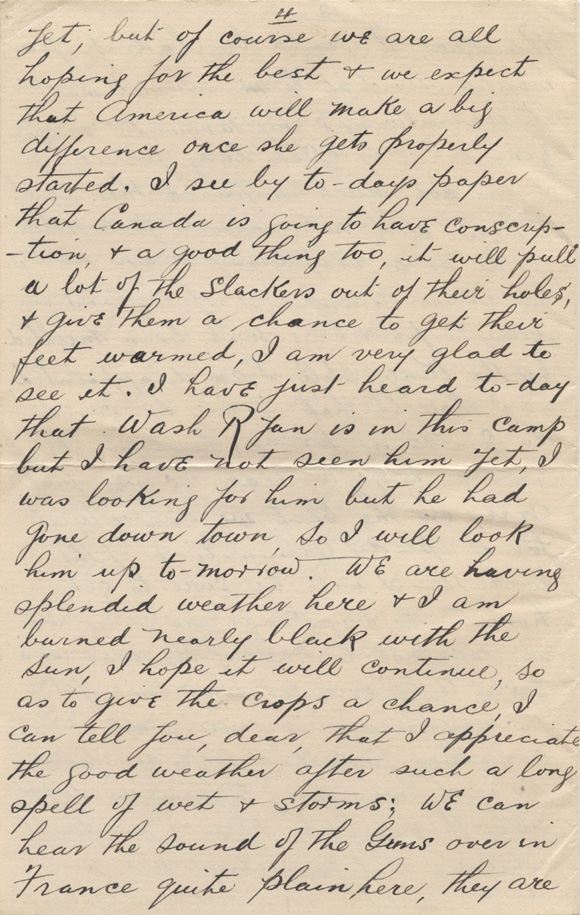 4
yet, but of course we are all
hoping for the best & we expect
that America will make a big
difference once she gets properly
started. I see by to-days paper
that Canada is going to have conscrip-
-tion, & a good thing too, it will pull
a lot of the slackers out of their holes,
& give them a chance to get their
feet warmed, I am very glad to
see it. I have just heard to-day
that Wash Ryan is in this camp
but I have not seen him yet, I
was looking for him but he had
gone down town, so I will look
him up to-morrow. We are having
splendid weather here & I am
burned nearly black with the
sun, I hope it will continue, so
as to give the crops a chance, I
can tell you, dear, that I appreciate
the good weather after such a long
spell of wet & storms; We can
hear the sound of the Guns over in
France quite plain here, they are